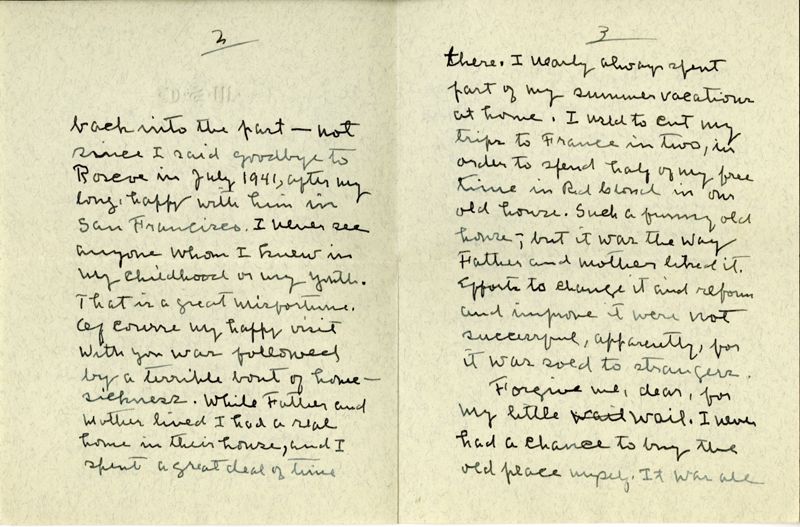 2
back into the past — not
since I said goodbye to
Roscoe in July 1941, after my
long, happy with him in
San Francisco. I never see
anyone whom I knew in
my childhood or my youth.
That is a great misfortune.
Of course my happy visit
with you was followed
by a terrible bout of home-
sickness. While Father and
Mother lived I had a real
home in their house, and I
spent a great deal of time
3
there. I nearly always spent
part of my summer vacations
at home. I used to cut my
trips to France in two, in
order to spend half of my free
time in Red Cloud in our
old house. Such a funny old
house; but it was the way
Father and mother liked it.
Efforts to change it and reform
and improve it were not
successful, apparently, for
it was sold to strangers.
Forgive me, dear, for
my little wail wail. I never
had a chance to buy the
old place myself. It was all